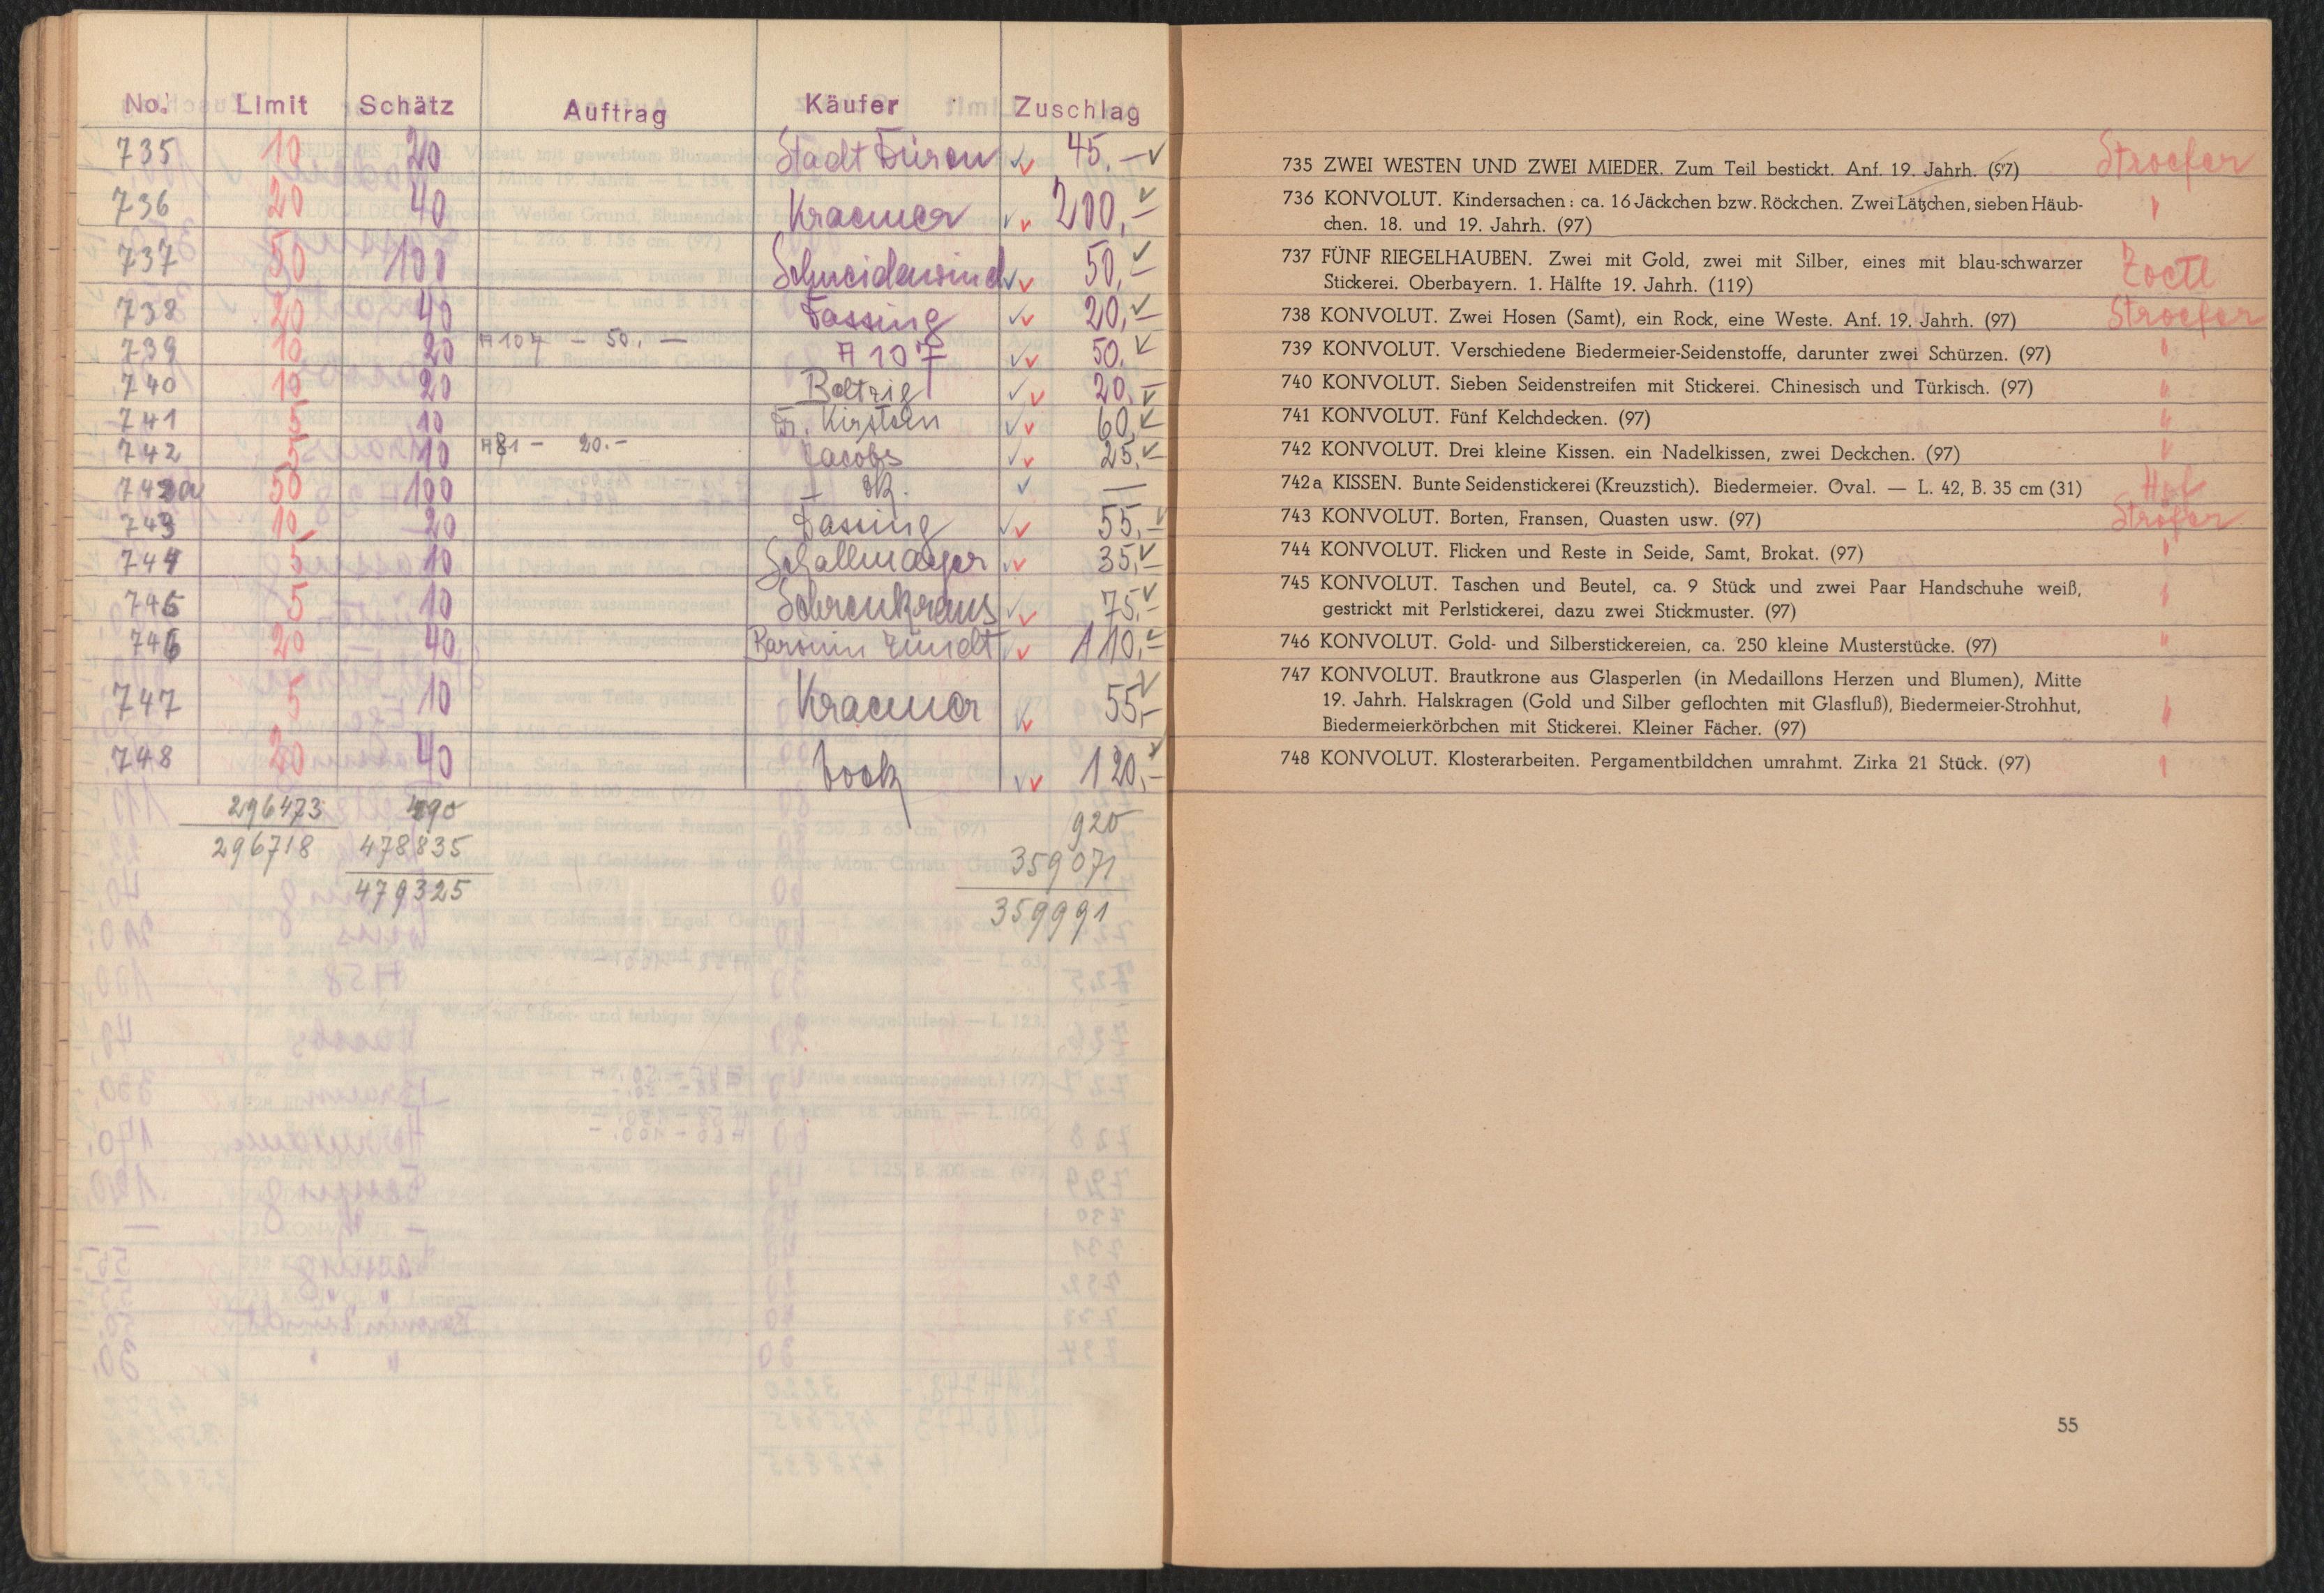 No. Limit Schätz Auftrag Käufer Zuschlag
735 10 20 Stadt Düren 45.—
736 20 40 Kraemer 200,—
737 50 100 Schneidawind 50,—
738 20 40 Fassing 20,—
739 10 20 A 107 — 50.— A 107 50.
740 10 20 Boltzig 20,—
741 5 10 Fr. Kirstein 60,
742 5 10 A81 — 20.— Jacobs 25,—
742a 50 100 —
743 10 20 Fassing 55,—
744 5 10 Schallmayer 35,—
745 5 10 Schrenkraus 75,—
746 20 40 Baronin Zündt 110,—
747 5 10 Kraemer 55,—
748 20 40 120,—
296473 490
296718 478835
479325
920
359071
359991
735 ZWEI WESTEN UND ZWEI MIEDER. Zum Teil bestickt. Anf. 19. Jahrh. (97) Stroefer
736 KONVOLUT. Kindersachen: ca. 16 Jäckchen bzw. Röckchen. Zwei Lätzchen, sieben Häub-
chen. 18. und 19. Jahrh. (97) "
737 FÜNF RIEGELHAUBEN. Zwei mit Gold, zwei mit Silber, eines mit blau-schwarzer
Stickerei. Oberbayern. 1. Hälfte 19. Jahrh. (119) Zoetl
738 KONVOLUT. Zwei Hosen (Samt), ein Rock, eine Weste. Anf. 19. Jahrh. (97) Stroefer
739 KONVOLUT. Verschiedene Biedermeier-Seidenstoffe, darunter zwei Schürzen. (97) "
740 KONVOLUT. Sieben Seidenstreifen mit Stickerei. Chinesisch und Türkisch. (97) "
741 KONVOLUT. Fünf Kelchdecken. (97) "
742 KONVOLUT. Drei kleine Kissen. ein Nadelkissen, zwei Deckchen. (97) "
742a KISSEN. Bunte Seidenstickerei (Kreuzstich). Biedermeier. Oval. — L. 42, B. 35 cm (31)
743 KONVOLUT. Borten, Fransen, Quasten usw. (97) Ströfer
744 KONVOLUT. Flicken und Reste in Seide, Samt, Brokat. (97) "
745 KONVOLUT. Taschen und Beutel, ca. 9 Stück und zwei Paar Handschuhe weiß,
gestrickt mit Perlstickerei, dazu zwei Stickmuster. (97) "
746 KONVOLUT. Gold- und Silberstickereien, ca. 250 kleine Musterstücke. (97) "
747 KONVOLUT. Brautkrone aus Glasperlen (in Medaillons Herzen und Blumen), Mitte
19. Jahrh. Halskragen (Gold und Silber geflochten mit Glasfluß), Biedermeier-Strohhut,
Biedermeierkörbchen mit Stickerei. Kleiner Fächer. (97) "
748 KONVOLUT. Klosterarbeiten. Pergamentbildchen umrahmt. Zirka 21 Stück. (97) "
55